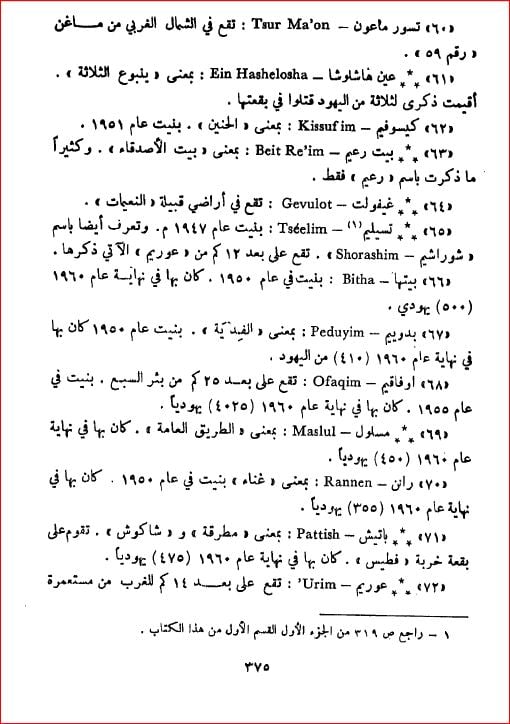 «٦٠» تسور ماعون – Tsur Ma'on : تقع في الشمال الغربي من مـاغن
« رقم ٥٩ » .
«٦١» *** عين هاشلوشا – Ein Hashelosha : بمعنى « ينبوع الثلاثة » .
أقيمت ذكرى لثلاثة من اليهود قتلوا في بقعتها .
«٦٢» كيسوفيم – Kissufim : بمعنى « الحنين » . بنيت عام ١٩٥١ .
«٦٣» *** بيت رعيم – Beit Re'im : بمعنى « بيت الأصدقاء » . وكثيراً
ما ذكرت باسم « رعيم » فقط .
«٦٤» *** غيفولت – Gevulot : تقع في أراضي قبيلة « النعيمات » .
«٦٥» *** تسيليم(١) – Tséelim : بنيت عام ١٩٤٧ م. وتعرف أيضا باسم
« شوراشيم – Shorashim » . تقع على بعد ١٢ كم من « عوريم » الآتي ذكرها .
«٦٦» بيتها – Bitha : بنيت في عام ١٩٥٠ . كان بها في نهاية عام ١٩٦٠
(٥٠٠) يهودي .
«٦٧» بدوييم – Peduyim : بمعنى « الفِدْيَة » . بنيت عام ١٩٥٠ كان بها
في نهاية عام ١٩٦٠ (٤١٠) من اليهود .
«٦٨» اوفاقيم – Ofaqim : تقع على بعـد ٢٥ كم من بئر السبع . بنيت في
عام ١٩٥٥ . كان بها في نهاية عام ١٩٦٠ (٤٠٢٥) يهودياً .
«٦٩» *** مسلول – Maslul : بمعنى « الطريق العامة » . كان بها في نهاية
عام ١٩٦٠ (٤٥٠) يهودياً .
«٧٠» رانن – Rannen : بمعنى « غناء » بنيت في عام ١٩٥٠ . كان بها في
نهاية عام ١٩٦٠ (٣٥٥) يهودياً .
«٧١» *** باتيش – Pattish : بمعنى « مطرقة » و « شاكوش » . تقوم على
بقعة خربة « فطيس » . كان بها في نهاية عام ١٩٦٠ (٤٧٥) يهودياً .
«٧٢» *** عوريم – Urim' : تقع على بعـــد ١٤ كم للغرب من مستعمرة
١ – راجع ص ٣١٩ من الجزء الأول القسم الأول من هذا الكتاب .
٣٧٥